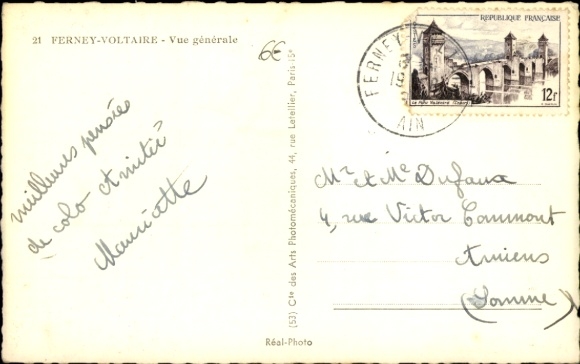 21 FERNEY-VOLTAIRE - Vue générale
6€
REPUBLIQUE FRANÇAISE
12f
FERNEY
AIN
meilleures pensées
de colo Amitié
Mauricette
(53) Cie des Arts Photomécaniques, 44, rue Letellier, Paris-15e
Mr et Me Dufaux
4, rue Victor Commont
Amiens
(Somme)
Réal-Photo